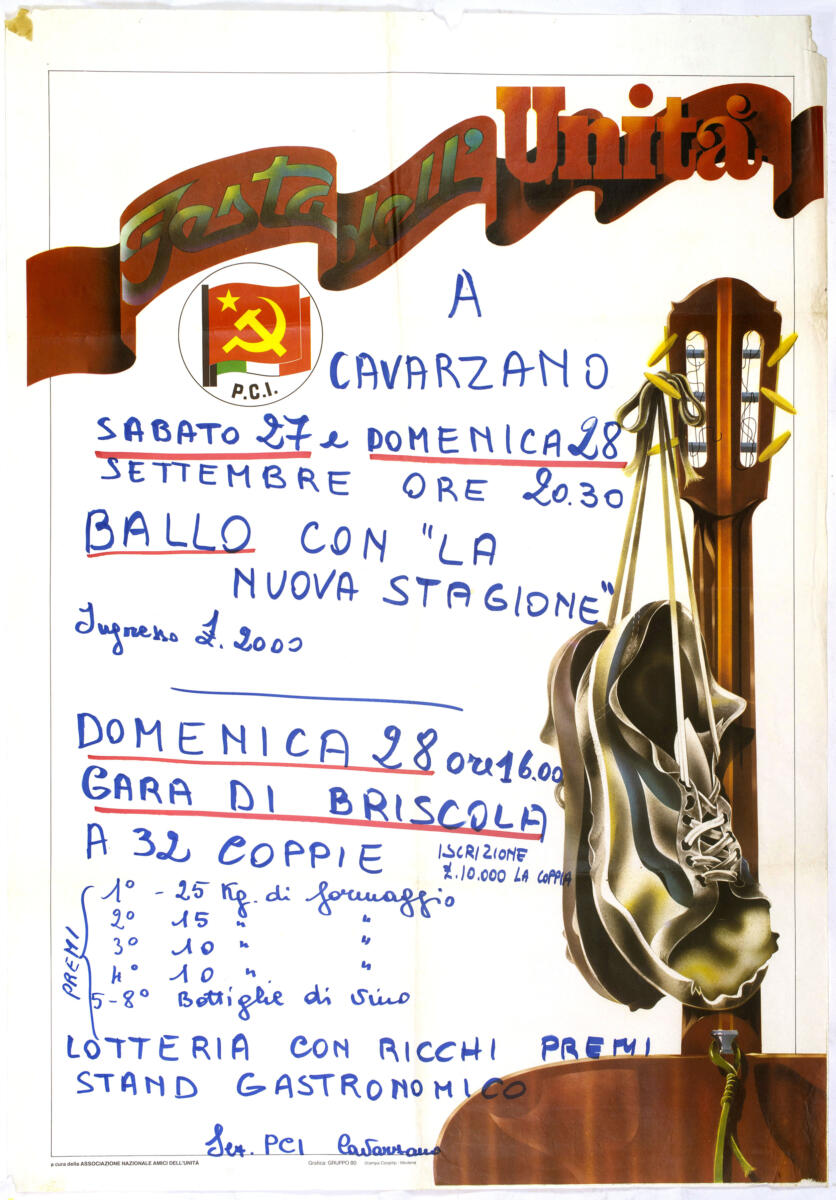 Festa dell'Unità
P.C.I.
A
CAVARZANO
SABATO 27 e DOMENICA 28
SETTEMBRE ORE 20.30
BALLO CON "LA
NUOVA STAGIONE"
Ingresso £. 2000
DOMENICA 28 ore 16.00
GARA DI BRISCOLA
A 32 COPPIE
ISCRIZIONE
£. 10.000 LA COPPIA
PREMI
1° - 25 Kg. di formaggio
2° 15 " "
3° 10 " "
4° 10 " "
5-8° Bottiglie di vino
LOTTERIA CON RICCHI PREMI
STAND GASTRONOMICO
Sez. PCI Cavarzano
a cura della ASSOCIAZIONE NAZIONALE AMICI DELL'UNITÀ
Grafica: GRUPPO 80 Stampa Coptip - Modena